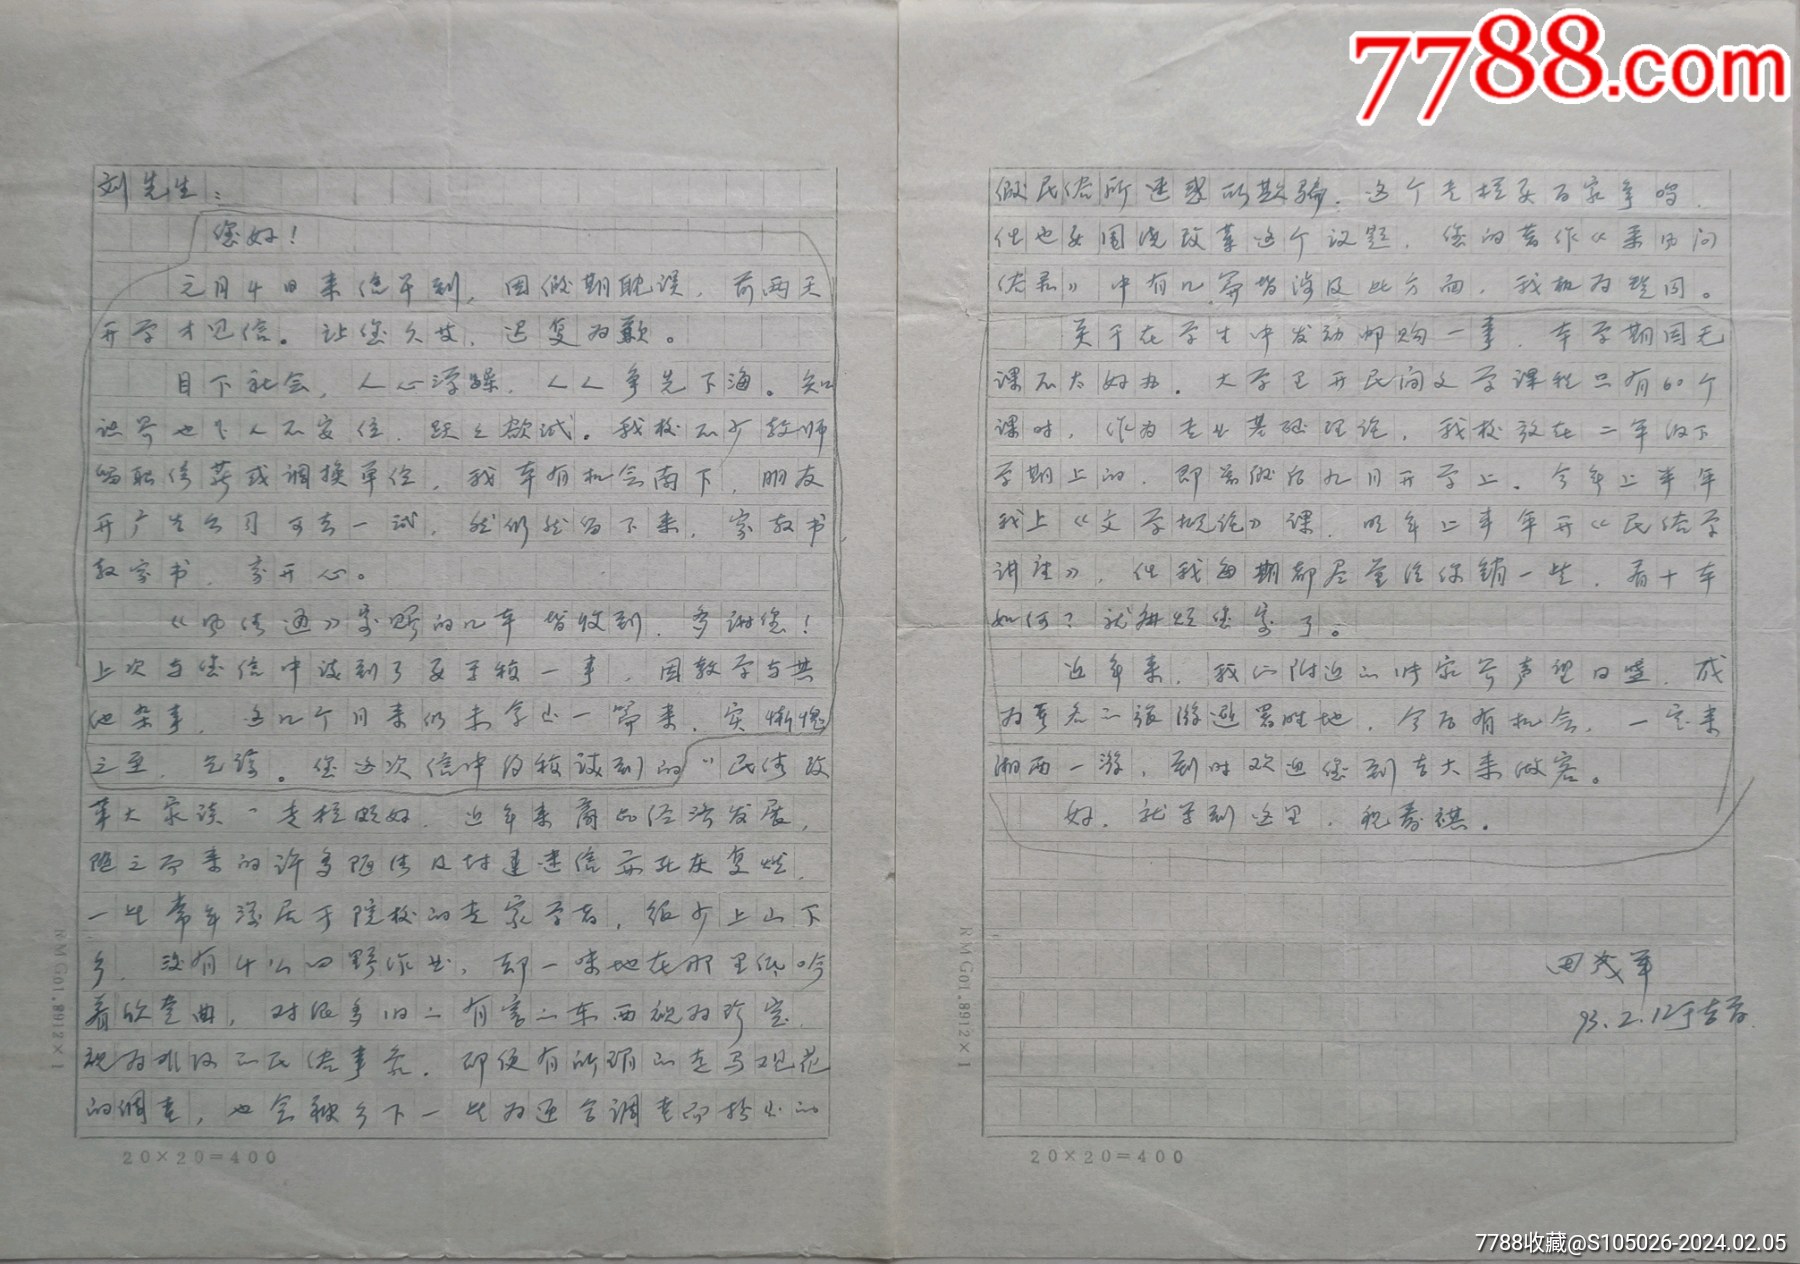 刘先生：
您好！
元月4日来信早到，因假期耽误，前两天
开学才见信。让您久等，迟复为歉。
目下社会，人心浮躁，人人争先下海。知
识界也人人不安位，跃跃欲试。我校不少教师
留职停薪或调换单位，我本有机会南下，朋友
开广告公司可去一试，然仍然留下来，家教书，
教家书，寄开心。
《风俗通》寄赐的几本皆收到，多谢您！
上次与您信中谈到了要写稿一事，因教学与其
他杂事，这几个月来仍未写出一篇来，实惭愧
之至，见谅。您这次信中约稿谈到的"民俗改
革大家谈"专栏颇好，近年来商品经济发展，
随之而来的许多陋俗及封建迷信亦死灰复燃，
一些常年深居于院校的专家学者，很少上山下
乡，没有什么田野作业，却一味地在那里低吟
着欣赏曲，对很多旧的有害的东西视为珍宝，
视为难得的民俗事象。即使有所谓的走马观花
的调查，也会被乡下一些为迎合调查而抬出的
假民俗所迷惑所欺骗。这个专栏要百家争鸣，
但也要围绕改革这个议题，您的著作《采风问
俗录》中有几篇皆涉及此方面，我极为赞同。
关于在学生中发动邮购一事，本学期因无
课不大好办。大学里开民间文学课程只有60个
课时，作为专业基础理论，我校放在二年的下
学期上的，即暑假后九月开学上。今年上半年
我上《文学概论》课，明年上半年开《民俗学
讲座》，但我每期都尽量给你销一些，看十本
如何？就麻烦您寄了。
近年来，我们附近的张家界声望日盛，成
为著名的旅游避暑胜地，今后有机会，一定来
湘西一游，到时欢迎您到吉大来做客。
好，就写到这里，祝春祺。
田茂军
93.2.12于吉首
20×20=400
20×20=400
RMG01.8912×1
RMG01.8912×1
7788.com
7788收藏@S105026-2024.02.05